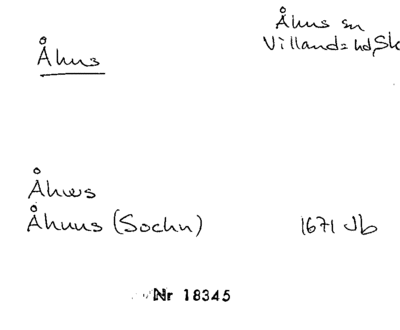 Åhus
Åhus sn
Villands hd, Sk
Åhws
Åhuus (Sochn)
1671 Jb
Nr 18345